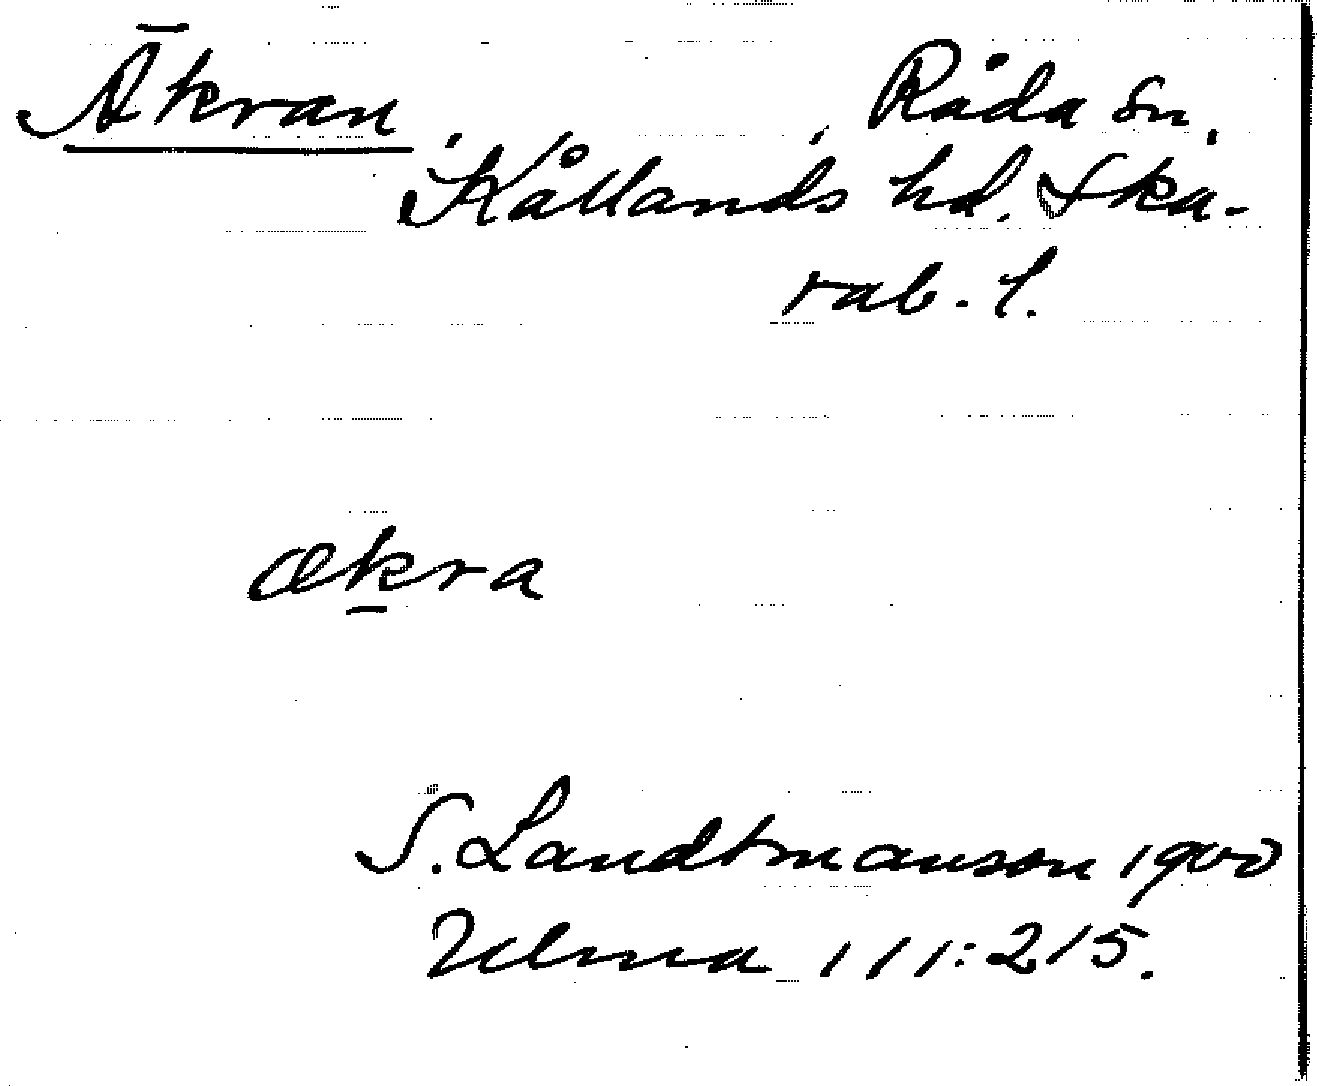 Äkran, Råda sn,
Kållands hd. Ska-
rab. l.
ækra
S. Landtmanson 1900
Ulma 111:215.